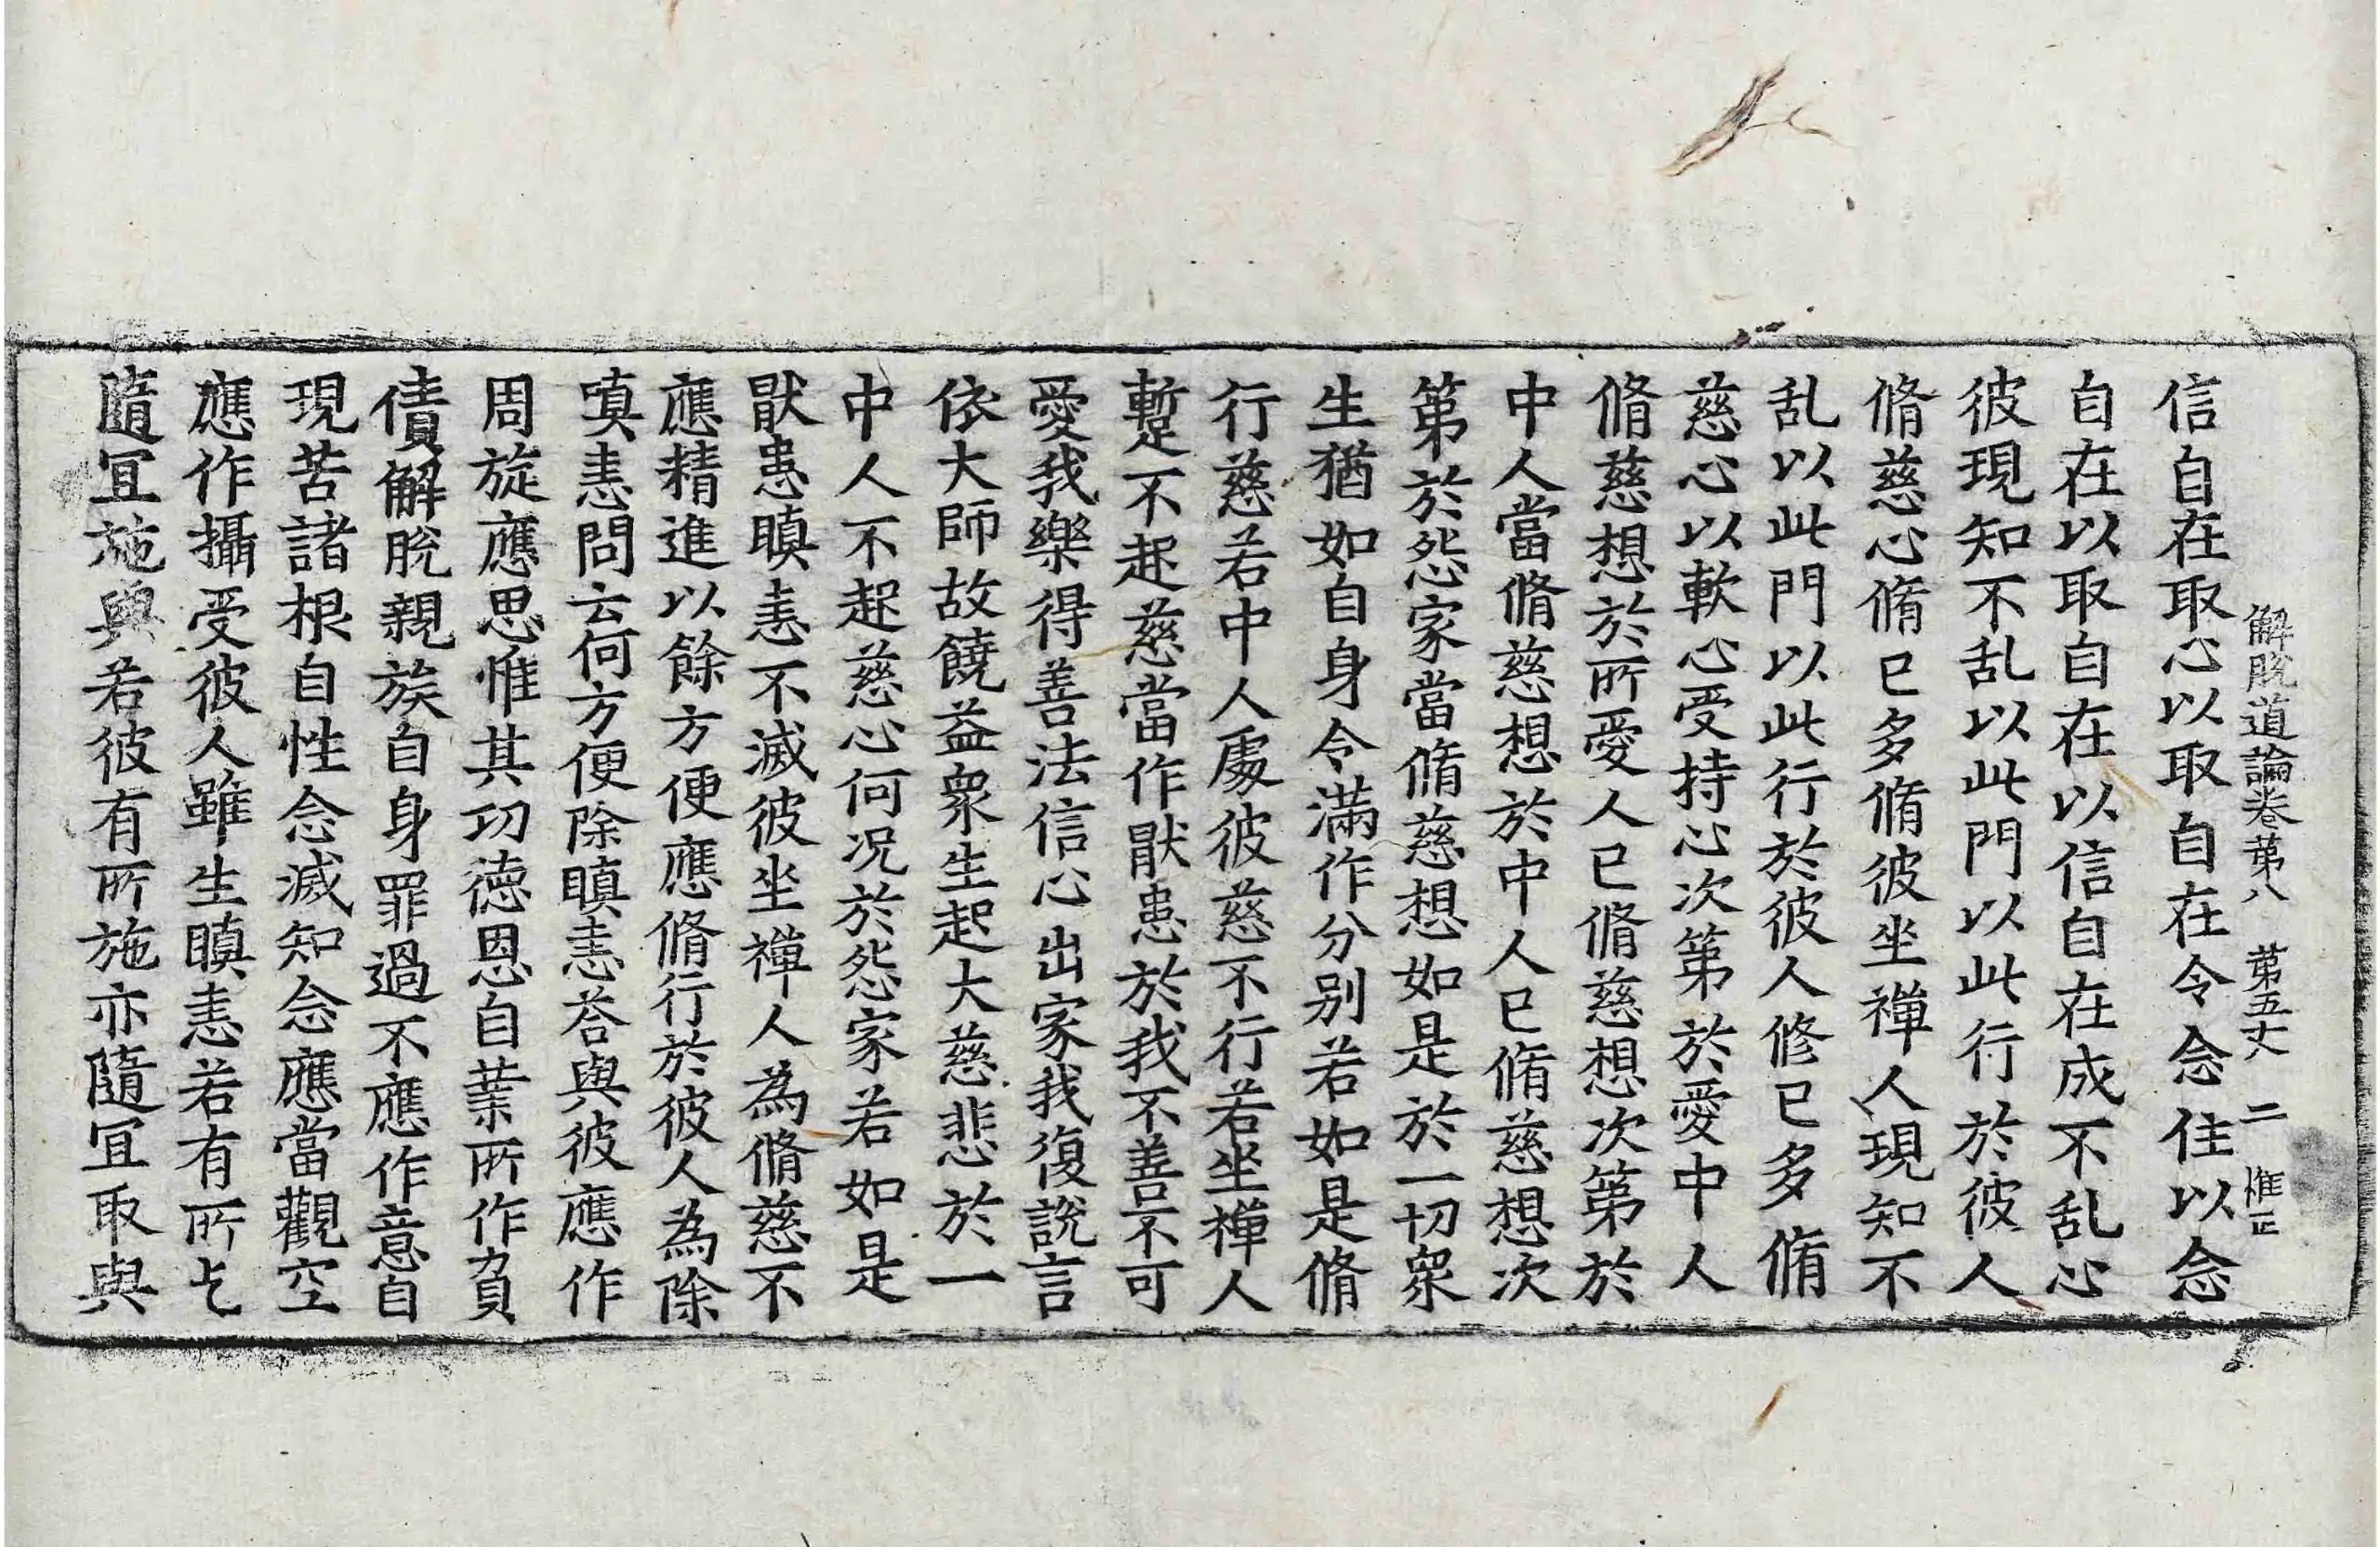 解脫道論卷第八　第五丈　二　惟正
信自在取心以取自在令念住以念
自在以取自在以信自在成不乱心
彼現知不乱以此門以此行於彼人
脩慈心脩已多脩彼坐禪人現知不
乱以此門以此行於彼人修已多脩
慈心以軟心受持心次第於愛中人
脩慈想於所愛人已脩慈想次第於
中人當脩慈想於中人已脩慈想次
第於怨家當脩慈想如是於一切衆
生猶如自身令滿作分別若如是脩
行慈若中人處彼慈不行若坐禪人
蹔不起慈當作猒患於我不善不可
愛我樂得善法信心出家我復說言
依大師故饒益衆生起大慈悲於一
中人不起慈心何况於怨家若如是
猒患瞋恚不滅彼坐禪人為脩慈不
應精進以餘方便應脩行於彼人為除
嗔恚問云何方便除瞋恚荅與彼應作
周旋應思惟其功德恩自業所作負
債解脫親族自身罪過不應作意自
現苦諸根自性念滅知念應當觀空
應作攝受彼人雖生瞋恚若有所乞
隨冝施與若彼有所施亦隨冝取與